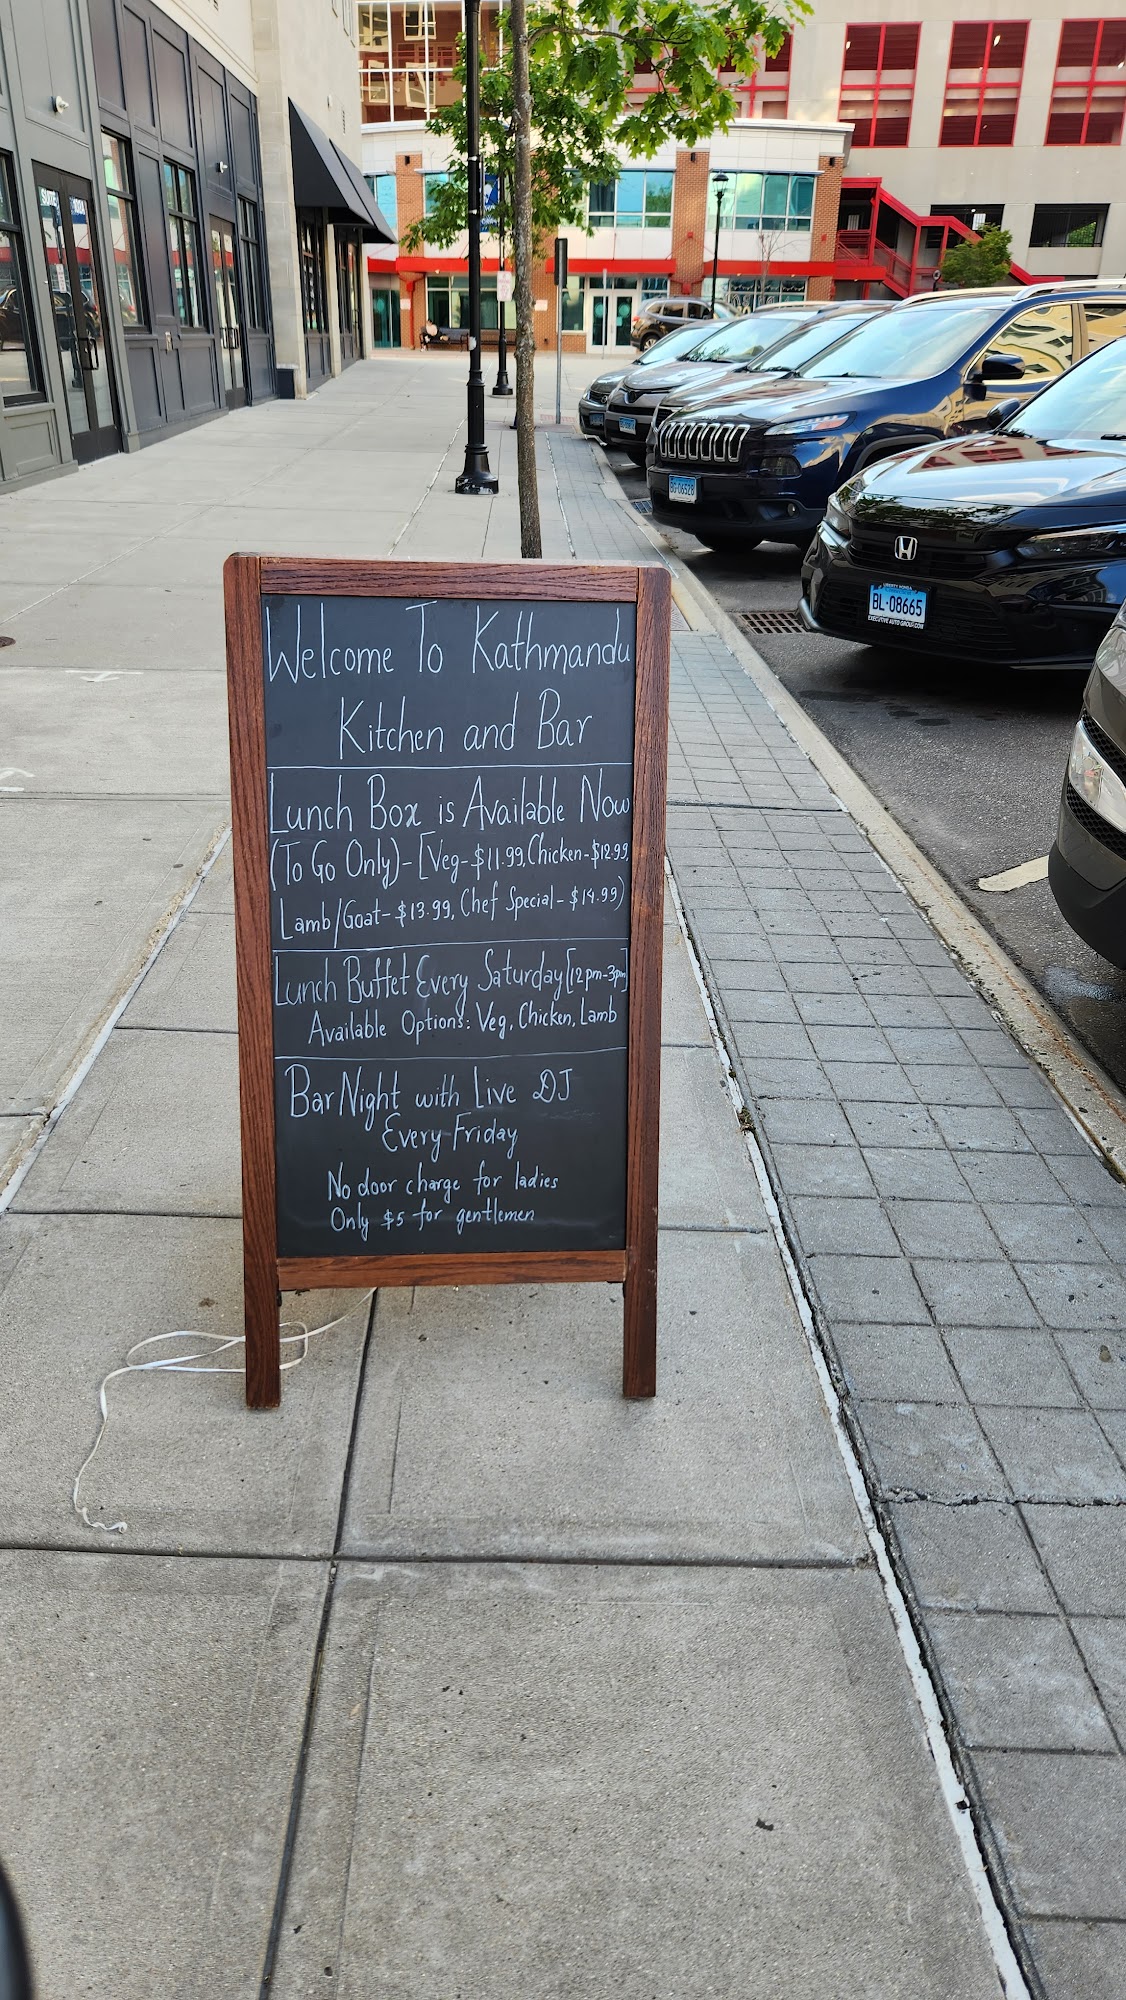 Welcome To Kathmandu
Kitchen and Bar
Lunch Box is Available Now
(To Go Only)-[Veg-$11.99, Chicken-$12.99,
Lamb/Goat-$13.99, Chef Special-$14.99)
Lunch Buffet Every Saturday[12pm-3pm]
Available Options: Veg, Chicken, Lamb
Bar Night with Live DJ
Every Friday
No door charge for ladies
Only $5 for gentlemen
SUITE 103A
BG·06528
LIBERTY HONDA
BL·08665
EXECUTIVE AUTO GROUP.COM